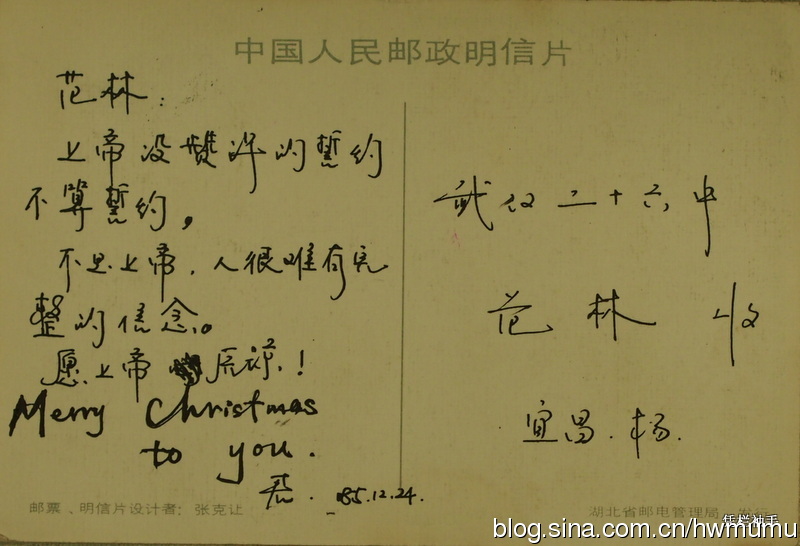 中国人民邮政明信片
范林：
上帝没赞许的誓约
不算誓约，
不是上帝，人很难有完
整的信念。
愿上帝原谅！
Merry Christmas
to you.
85.12.24.
武汉二十六中
范林 收
宜昌．杨．
邮票、明信片设计者：张克让
湖北省邮电管理局 发行
凭栏袖手
blog.sina.com.cn/hwmumu